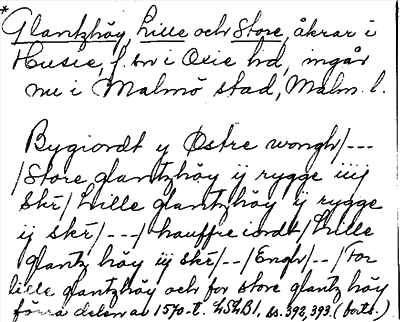 * Glantzhöy, Lille och Store, åkrar i
Husie, f. sn i Oxie hd, ingår
nu i Malmö stad, Malm. l.
Bygiordt y Østre wongh/---
/Store glantzhöy ij rygge iiij
skr̄/ Lille glantzhöy ij rygge
ij skr̄/---/ hauffre iordt/ Lille
glantz höy iij skr̄/--/Engh/--/For
lille glantzhöy och for store glantz höy
förra delen av 1570-t. LSLB1, ss. 392, 393. (forts.)